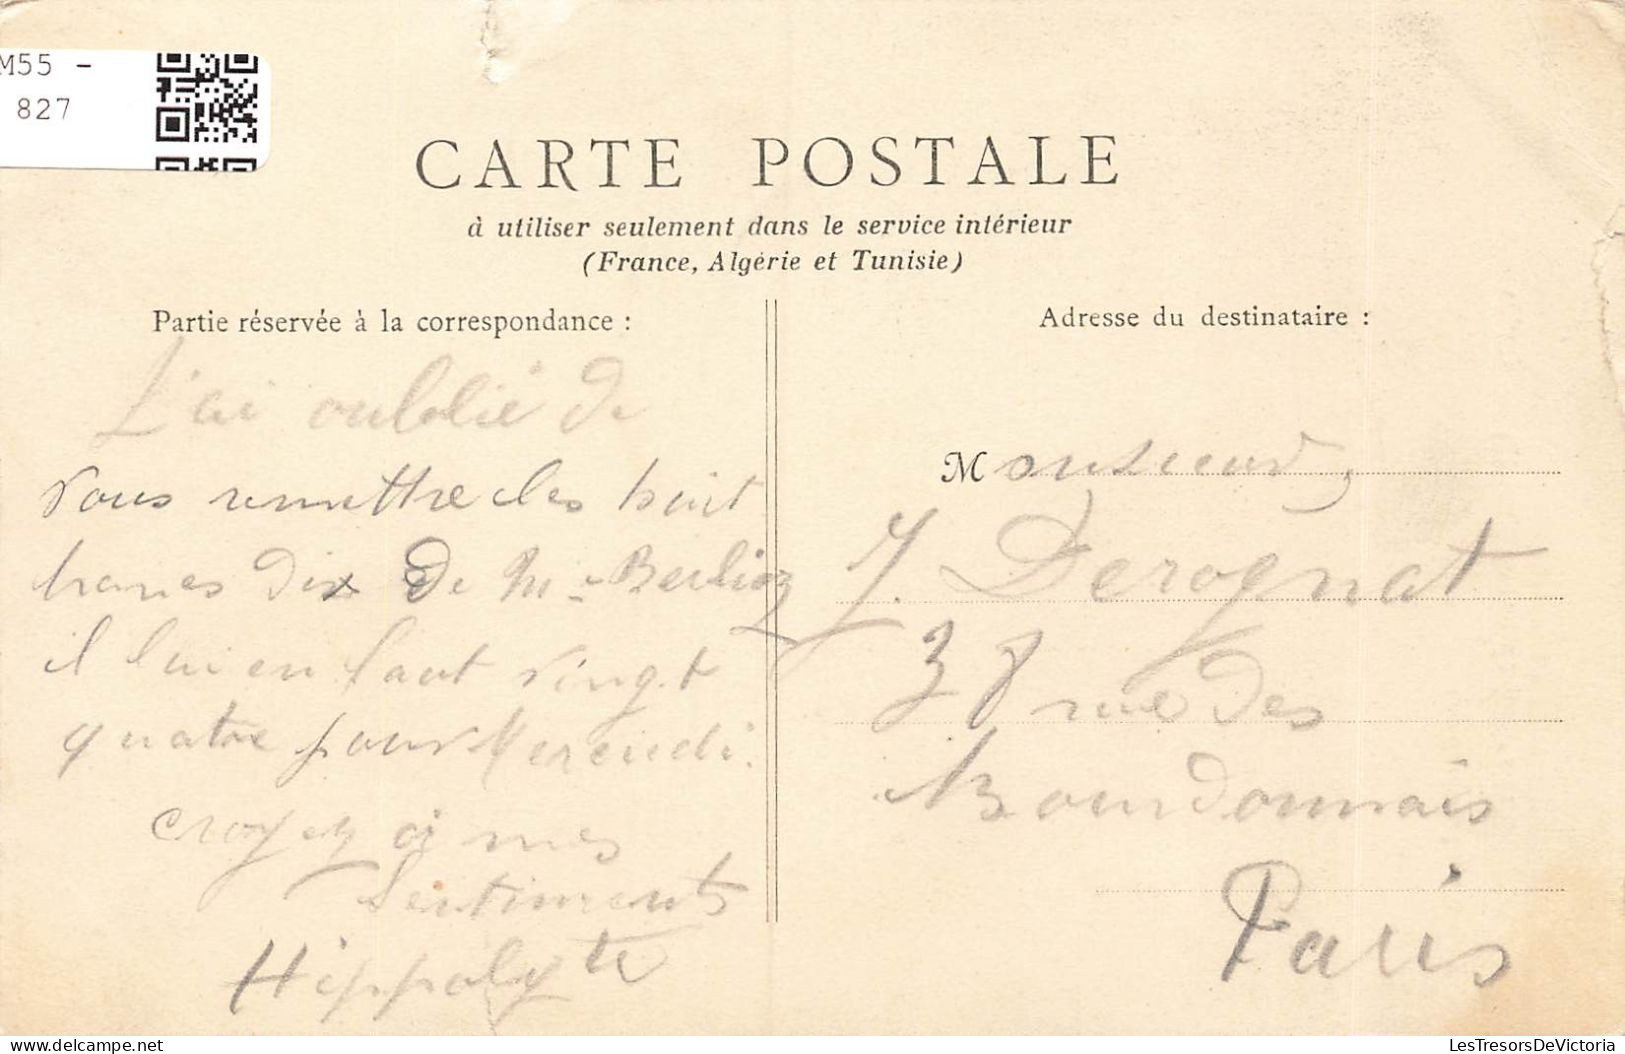 M55 -
827
CARTE POSTALE
à utiliser seulement dans le service intérieur
(France, Algérie et Tunisie)
Partie réservée à la correspondance :
J'ai oublié de
vous remettre les huit
francs dix de Mr Berlioz
il lui en faut vingt
quatre pour Mercredi.
croyez à mes
sentiments
Hippolyte
Adresse du destinataire :
Monsieur
J. Derognat
38 rue des
Bourdonnais
Paris
delcampe.net
LesTresorsDeVictoria